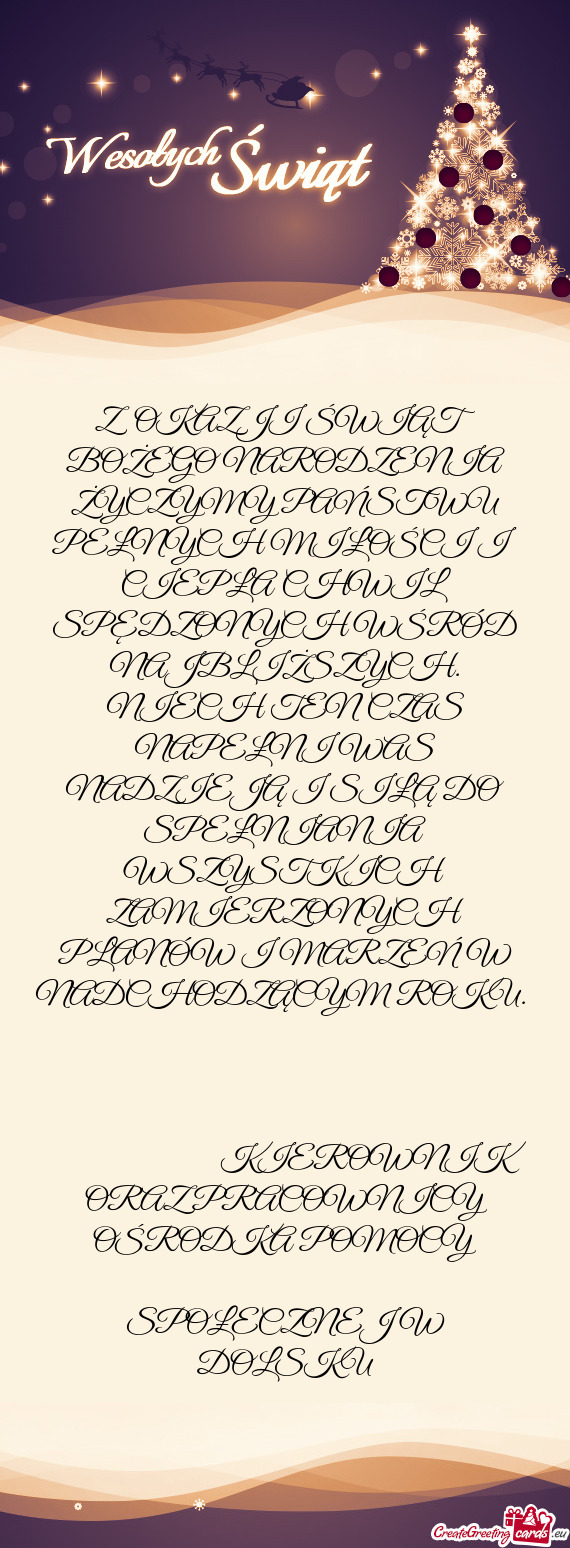 Wesołych Świąt
Z OKAZJI ŚWIĄT
BOŻEGO NARODZENIA
ŻYCZYMY PAŃSTWU
PEŁNYCH MIŁOŚCI I
CIEPŁA CHWIL
SPĘDZONYCH WŚRÓD
NAJBLIŻSZYCH.
NIECH TEN CZAS
NAPEŁNI WAS
NADZIEJĄ I SIŁĄ DO
SPEŁNIANIA
WSZYSTKICH
ZAMIERZONYCH
PLANÓW I MARZEŃ W
NADCHODZĄCYM ROKU.
KIEROWNIK
ORAZ PRACOWNICY
OŚRODKA POMOCY
SPOŁECZNEJ W
DOLSKU
CreateGreetingcards.eu